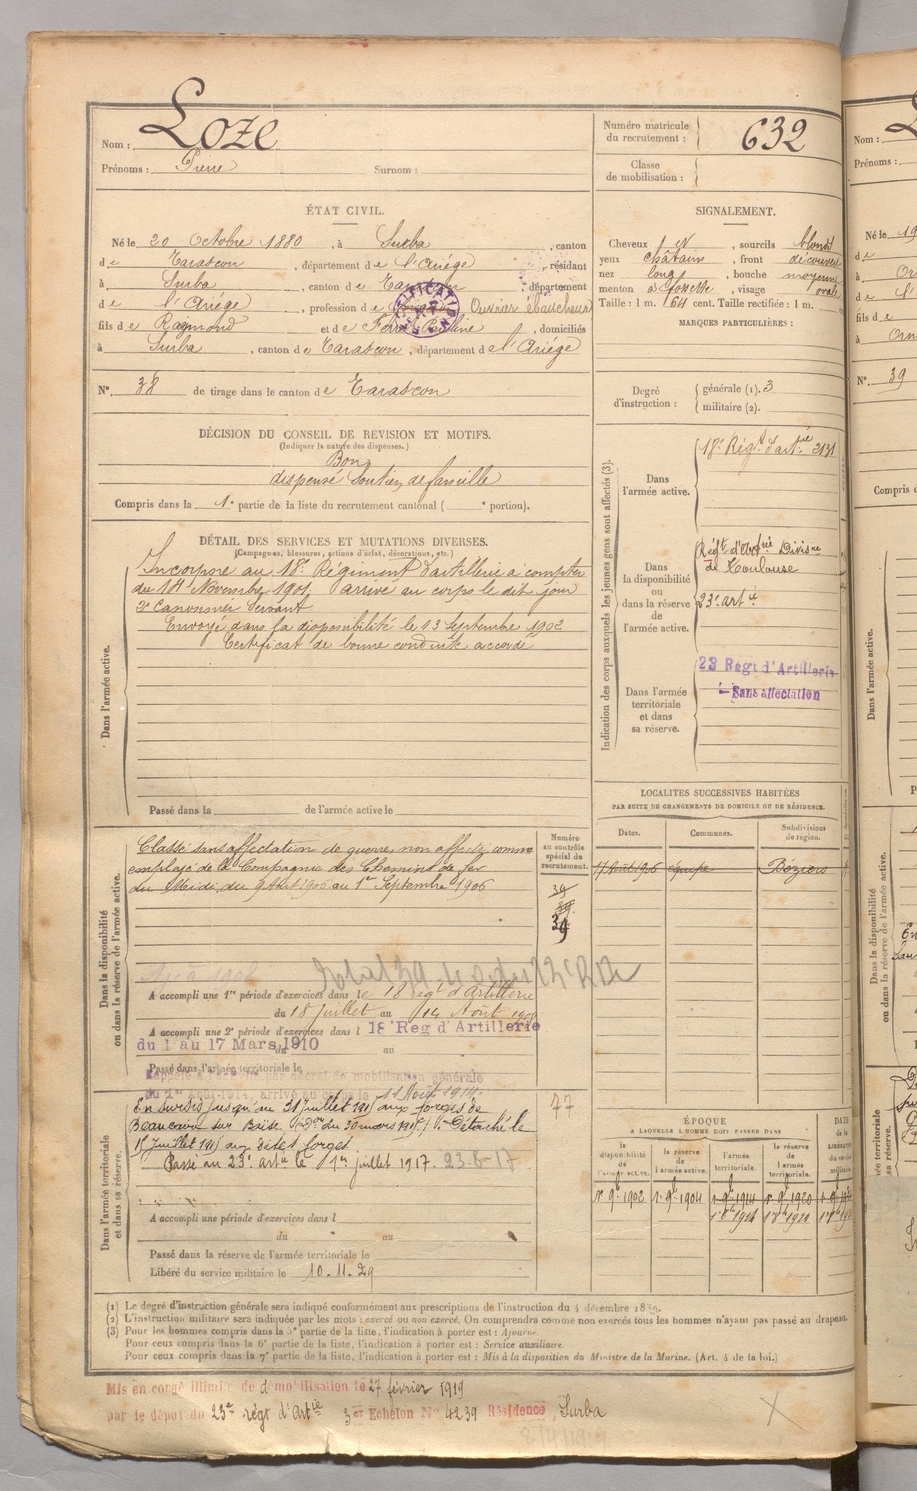 Nom : Loze
Prénoms : Pierre Surnom :
Numéro matricule du recrutement : 632
Classe de mobilisation :
ÉTAT CIVIL.
Né le 20 Octobre 1880, à Surba, canton
de Tarascon, département de l'Ariége, résidant
à Surba, canton de Tarascon, département
de l'Ariége, profession de Ouvrier ébaucheur
fils de Raymond et de Pauline, domiciliés
à Surba, canton de Tarascon, département de l'Ariége
N° 38 de tirage dans le canton de Tarascon
SIGNALEMENT.
Cheveux N, sourcils blonds
yeux châtain, front découvert
nez long, bouche moyenne
menton à fossette, visage ovale
Taille : 1 m. 64 cent. Taille rectifiée : 1 m.
MARQUES PARTICULIÈRES :
Degré d'instruction : générale (1). 3
militaire (2).
DÉCISION DU CONSEIL DE REVISION ET MOTIFS.
(Indiquer la nature des dispenses.)
Bon
dispensé Soutien de famille
Compris dans la 1e partie de la liste du recrutement cantonal ( e portion).
DÉTAIL DES SERVICES ET MUTATIONS DIVERSES.
(Campagnes, blessures, actions d'éclat, décorations, etc.)
Dans l'armée active.
Incorporé au 18e Régiment d'artillerie à compter
du 14 Novembre 1901, arrivé au corps le dit jour
2e Canonnier Servant
Envoyé dans la disponibilité le 13 Septembre 1902
Certificat de bonne conduite accordé
Passé dans la de l'armée active le
Indication des corps auxquels les jeunes gens sont affectés (3).
Dans l'armée active.
18e Régt d'artrie 2131
Dans la disponibilité ou dans la réserve de l'armée active.
Régt d'artrie Divisre
de Toulouse
23e artie
Dans l'armée territoriale et dans sa réserve.
23 Regt d'Artillerie
Sans affectation
LOCALITES SUCCESSIVES HABITÉES
PAR SUITE DE CHANGEMENTS DE DOMICILE OU DE RÉSIDENCE.
Dates. Communes. Subdivisions de région.
Août 1906 équipe Béziers
Dans la disponibilité ou dans la réserve de l'armée active.
Numéro au contrôle spécial du recrutement.
39
39
39
Classé sans affectation de guerre, non affecté, comme
employé de la Compagnie des Chemins de fer
du Midi, du 9 1906 au 1er Septembre 1906
A accompli une 1re période d'exercices dans le 18 régt d'Artillerie
du 18 juillet au 14 Août 1908
A accompli une 2e période d'exercices dans l 18e Reg d'Artillerie
du 1 au 17 Mars 1910
du au
Passé dans l'armée territoriale le
Rappelé à l'activité par décret de mobilisation générale
du 1er Août 1914, arrivé au corps le 11 Août 1914.
Dans l'armée territoriale et dans sa réserve.
En sursis jusqu'au 31 juillet 191 aux forges de
Beaucaire sur Baïse 30 mars 191 Détaché le
juillet 191 aux dites forges
Passé au 23e artie le 1er juillet 1917. 23-6-17
77
A accompli une période d'exercices dans l
du au
Passé dans la réserve de l'armée territoriale le
Libéré du service militaire le 10.11.29
ÉPOQUE
A LAQUELLE L'HOMME DOIT PASSER DANS
la disponibilité de l'armée active. la réserve de l'armée active. l'armée territoriale. la réserve de l'armée territoriale.
DATE de la LIBÉRATION du service militaire.
1er 9bre 1902 1er 9bre 1904 1er 9bre 1914 1er 9bre 1920
1er 8bre 1914 1er 8bre 1920
(1) Le degré d'instruction générale sera indiqué conformément aux prescriptions de l'instruction du 4 décembre 1889.
(2) L'instruction militaire sera indiquée par les mots : exercé ou non exercé. On comprendra comme non exercés tous les hommes n'ayant pas passé au drapeau.
(3) Pour les hommes compris dans la 5e partie de la liste, l'indication à porter est : Ajourné.
Pour ceux compris dans la 6e partie de la liste, l'indication à porter est : Service auxiliaire.
Pour ceux compris dans la 7e partie de la liste, l'indication à porter est : Mis à la disposition du Ministre de la Marine. (Art. 4 de la loi.)
Mis en congé illimité de démobilisation le 27 février 1919
par le dépôt du 23e régt d'Artie 3er Echelon No 4239 Résidence, Surba